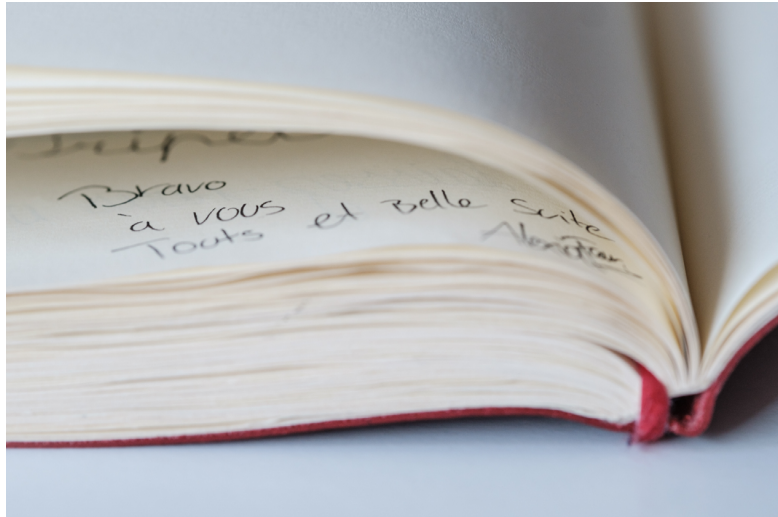 Bravo
à vous
Touts et Belle Suite